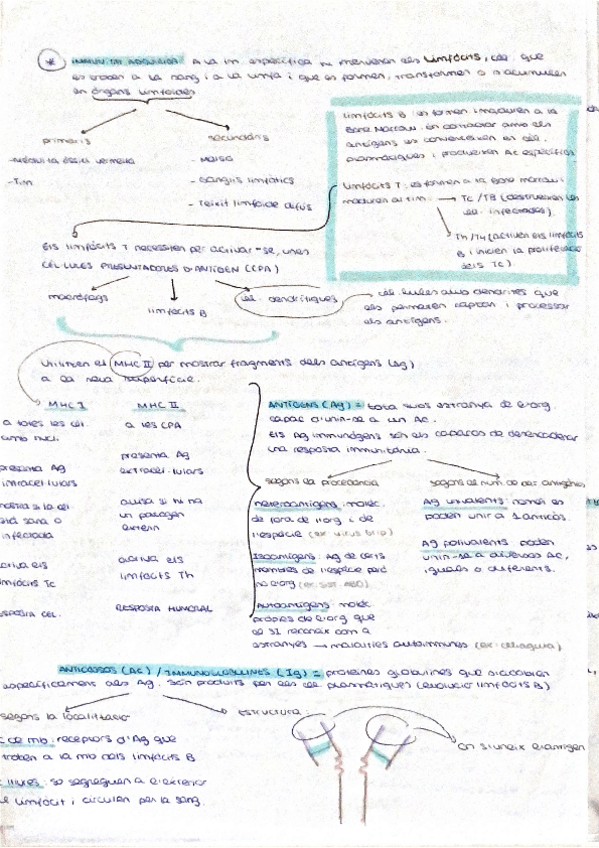 IMMUNITAT ADQUIRIDA: A la im. específica hi intervenen els limfòcits, cèl. que
es troben a la sang i a la limfa i que es formen, transformen o s'acumulen
en òrgans limfoides
primaris
- Medul·la òssia vermella
- Tim
secundaris
- Melsa
- Ganglis limfàtics
- Teixit limfoide difús
Limfòcits B: es formen i maduren a la
Bone Marrow. En contactar amb els
antígens es converteixen en cèl.
plasmàtiques i produeixen Ac específics
Limfòcits T: es formen a la bone marrow i
maduren al tim. → Tc / T8 (destrueixen les
cèl. infectades).
Th / T4 (activen els limfòcits
B i inicien la proliferació
dels Tc).
Els limfòcits T necessiten per activar-se, unes
CÈL·LULES PRESENTADORES D'ANTIGEN (CPA)
macròfags
limfòcits B
cèl. dendrítiques
cèl·lules amb dendrites que
els permeten captar i processar
els antígens.
Utilitzen el MHC II per mostrar fragments dels antígens (Ag)
a la seva superfície.
MHC I
a totes les cèl.
amb nucli.
presenta Ag
intracel·lulars
mostra si la cèl.
està sana o
infectada
activa els
limfòcits Tc
resposta CEL.
MHC II
a les CPA
presenta Ag
extracel·lulars
avisa si hi ha
un patogen
extern
activa els
limfòcits Th
RESPOSTA HUMORAL
ANTIGENS (Ag) = tota subs estranya de l'org.
capaç d'unir-se a un Ac.
Els Ag immunògens són els capaços de desencadenar
una resposta immunitària.
segons la procedència
Heteroantígens: molèc.
de fora de l'org i de
l'espècie (ex: virus grip)
Isoantígens: Ag de certs
membres de l'espècie però
no l'org (ex: sist. ABO)
Autoantígens: molèc
pròpies de l'org que
el SI reconeix com a
estranyes → malalties autoimmunes (ex: celiaquia)
segons el num de det. antigènics
Ag univalents: només es
poden unir a 1 anticòs.
Ag polivalents: poden
unir-se a diversos Ac,
iguals o diferents.
ANTICOSSOS (Ac) / IMMUNOGLOBULINES (Ig) = proteïnes globulines que s'acoblen
específicament als Ag. Són produïts per les cèl. plasmàtiques (evolució limfòcits B)
segons la localització
de mb: receptors d'Ag que
troben a la mb dels limfòcits B
lliures: se segreguen a l'exterior
limfòcit i circulen per la sang.
Estructura
On s'uneix l'antigen